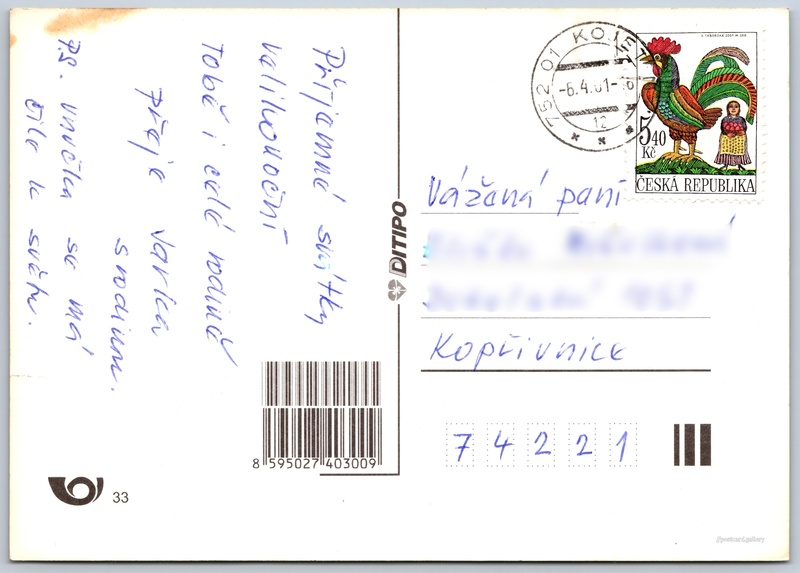 Příjemné svátky
velikonoční
Tobě i celé rodině
přeje Jarka
s rodinou.
P.S. vnučka se má
čile k světu.
DITIPO
8 595027 403009
33
752 01 KOJET
-6.4.01-
12
5,40
Kč
ČESKÁ REPUBLIKA
Vážená paní
Kopřivnice
74221
//postcard.gallery